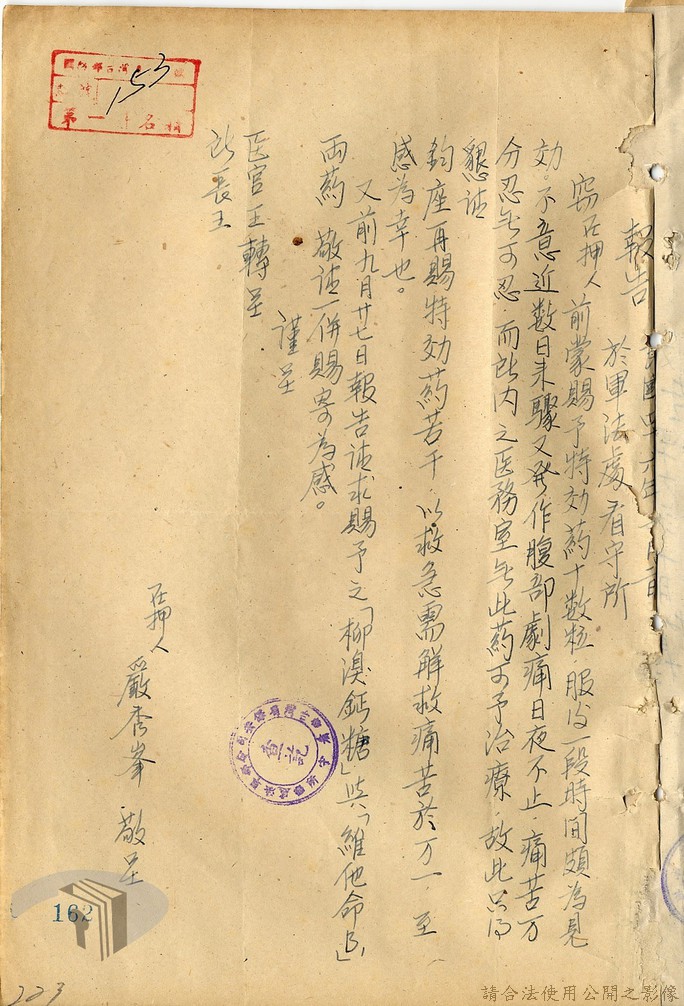 報告
於軍法處看守所
竊在押人前蒙賜予特効葯十数粒服後一段時間頗為見
効。不意近数日来驟又発作腹部劇痛日夜不止痛苦万
分忍無可忍而所内之医務室無此葯可予治療故此只得
懇請
鈞座再賜特効葯若干以救急需解救痛苦於万一至
感為幸也。
又前九月廿七日報告請求賜予之「柳溴鈣糖」與「維他命B1」
両葯敬請一併賜寄為感。
謹呈
医官王轉呈
所長王
在押人 嚴秀峯 敬呈
153
查訖
162
223
請合法使用公開之影像